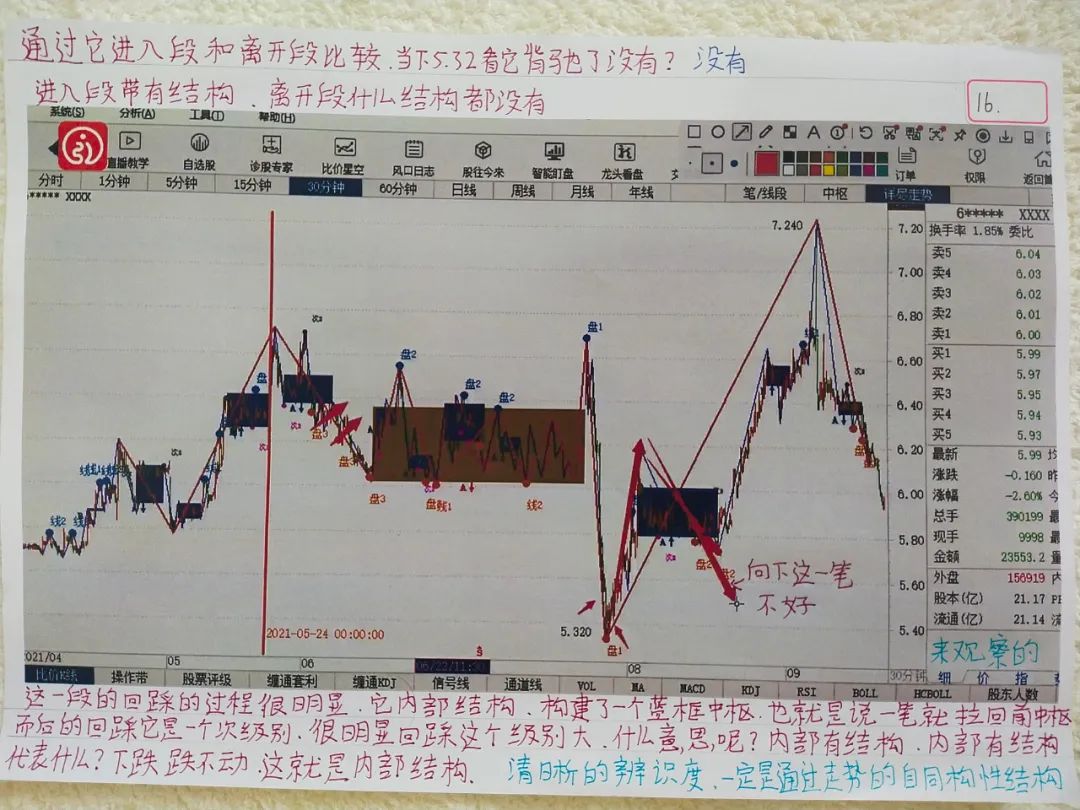 通过它进入段和离开段比较.当下5.32看它背驰了没有？没有
进入段带有结构、离开段什么结构都没有
16.
系统(S) 分析(A) 工具(T) 帮助(H)
直播教学 自选股 诊股专家 比价星空 风口日志 股往今来 智能盯盘 龙头看盘 订单 权限
分时 1分钟 5分钟 15分钟 30分钟 60分钟 日线 周线 月线 年线 笔/线段 中枢 详尽走势
****** XXXX
6***** XXXX
换手率 1.85% 委比
卖5 6.04
卖4 6.03
卖3 6.02
卖2 6.01
卖1 6.00
买1 5.99
买2 5.97
买3 5.95
买4 5.94
买5 5.93
最新 5.99 均
涨跌 -0.160 昨
涨幅 -2.60% 今
总手 390199 最
现手 9998 最
金额 23553.2 量
外盘 156919 内
股本(亿) 21.17
流通(亿) 21.14 流
7.20
7.00
6.80
6.60
6.40
6.20
6.00
5.80
5.60
5.40
7.240
盘1
盘2
盘2
盘2
盘3
盘3
盘3
线2
线2
5.320
盘1
向下这一笔
不好
2021-05-24 00:00:00
021/04 05 06 06/22/11:30 08 09 30分钟
来观察的
比价K线 操作带 股票评级 缠通套利 缠通KDJ 信号线 通道线 VOL MA MACD KDJ RSI BOLL HCBOLL 股东人数
细 价 指
这一段的回踩的过程很明显.它内部结构.构建了一个蓝框中枢.也就是说一笔就拉回前中枢
而后的回踩它是一个次级别.很明显回踩这个级别大.什么意思呢？内部有结构.内部有结构
代表什么？下跌跌不动.这就是内部结构.清晰的辨识度.一定是通过走势的自同构性结构